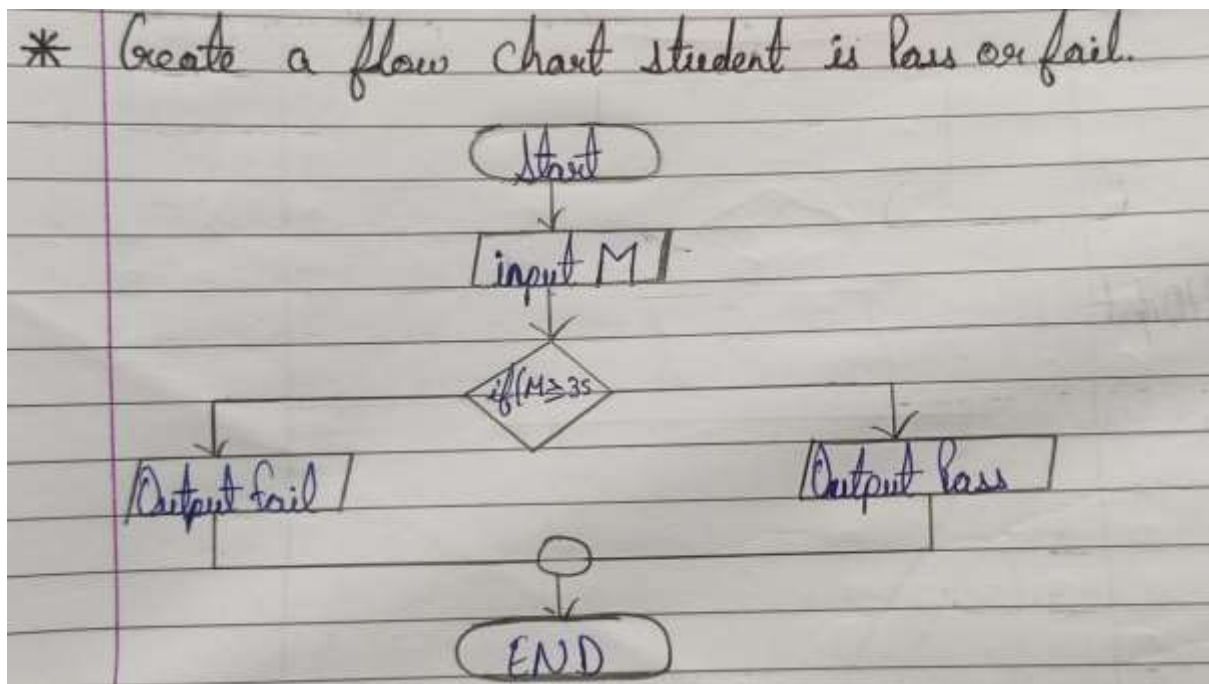 * Create a flow chart student is Pass or fail.
Start
input M
if(M≥35
Output fail
Output Pass
END